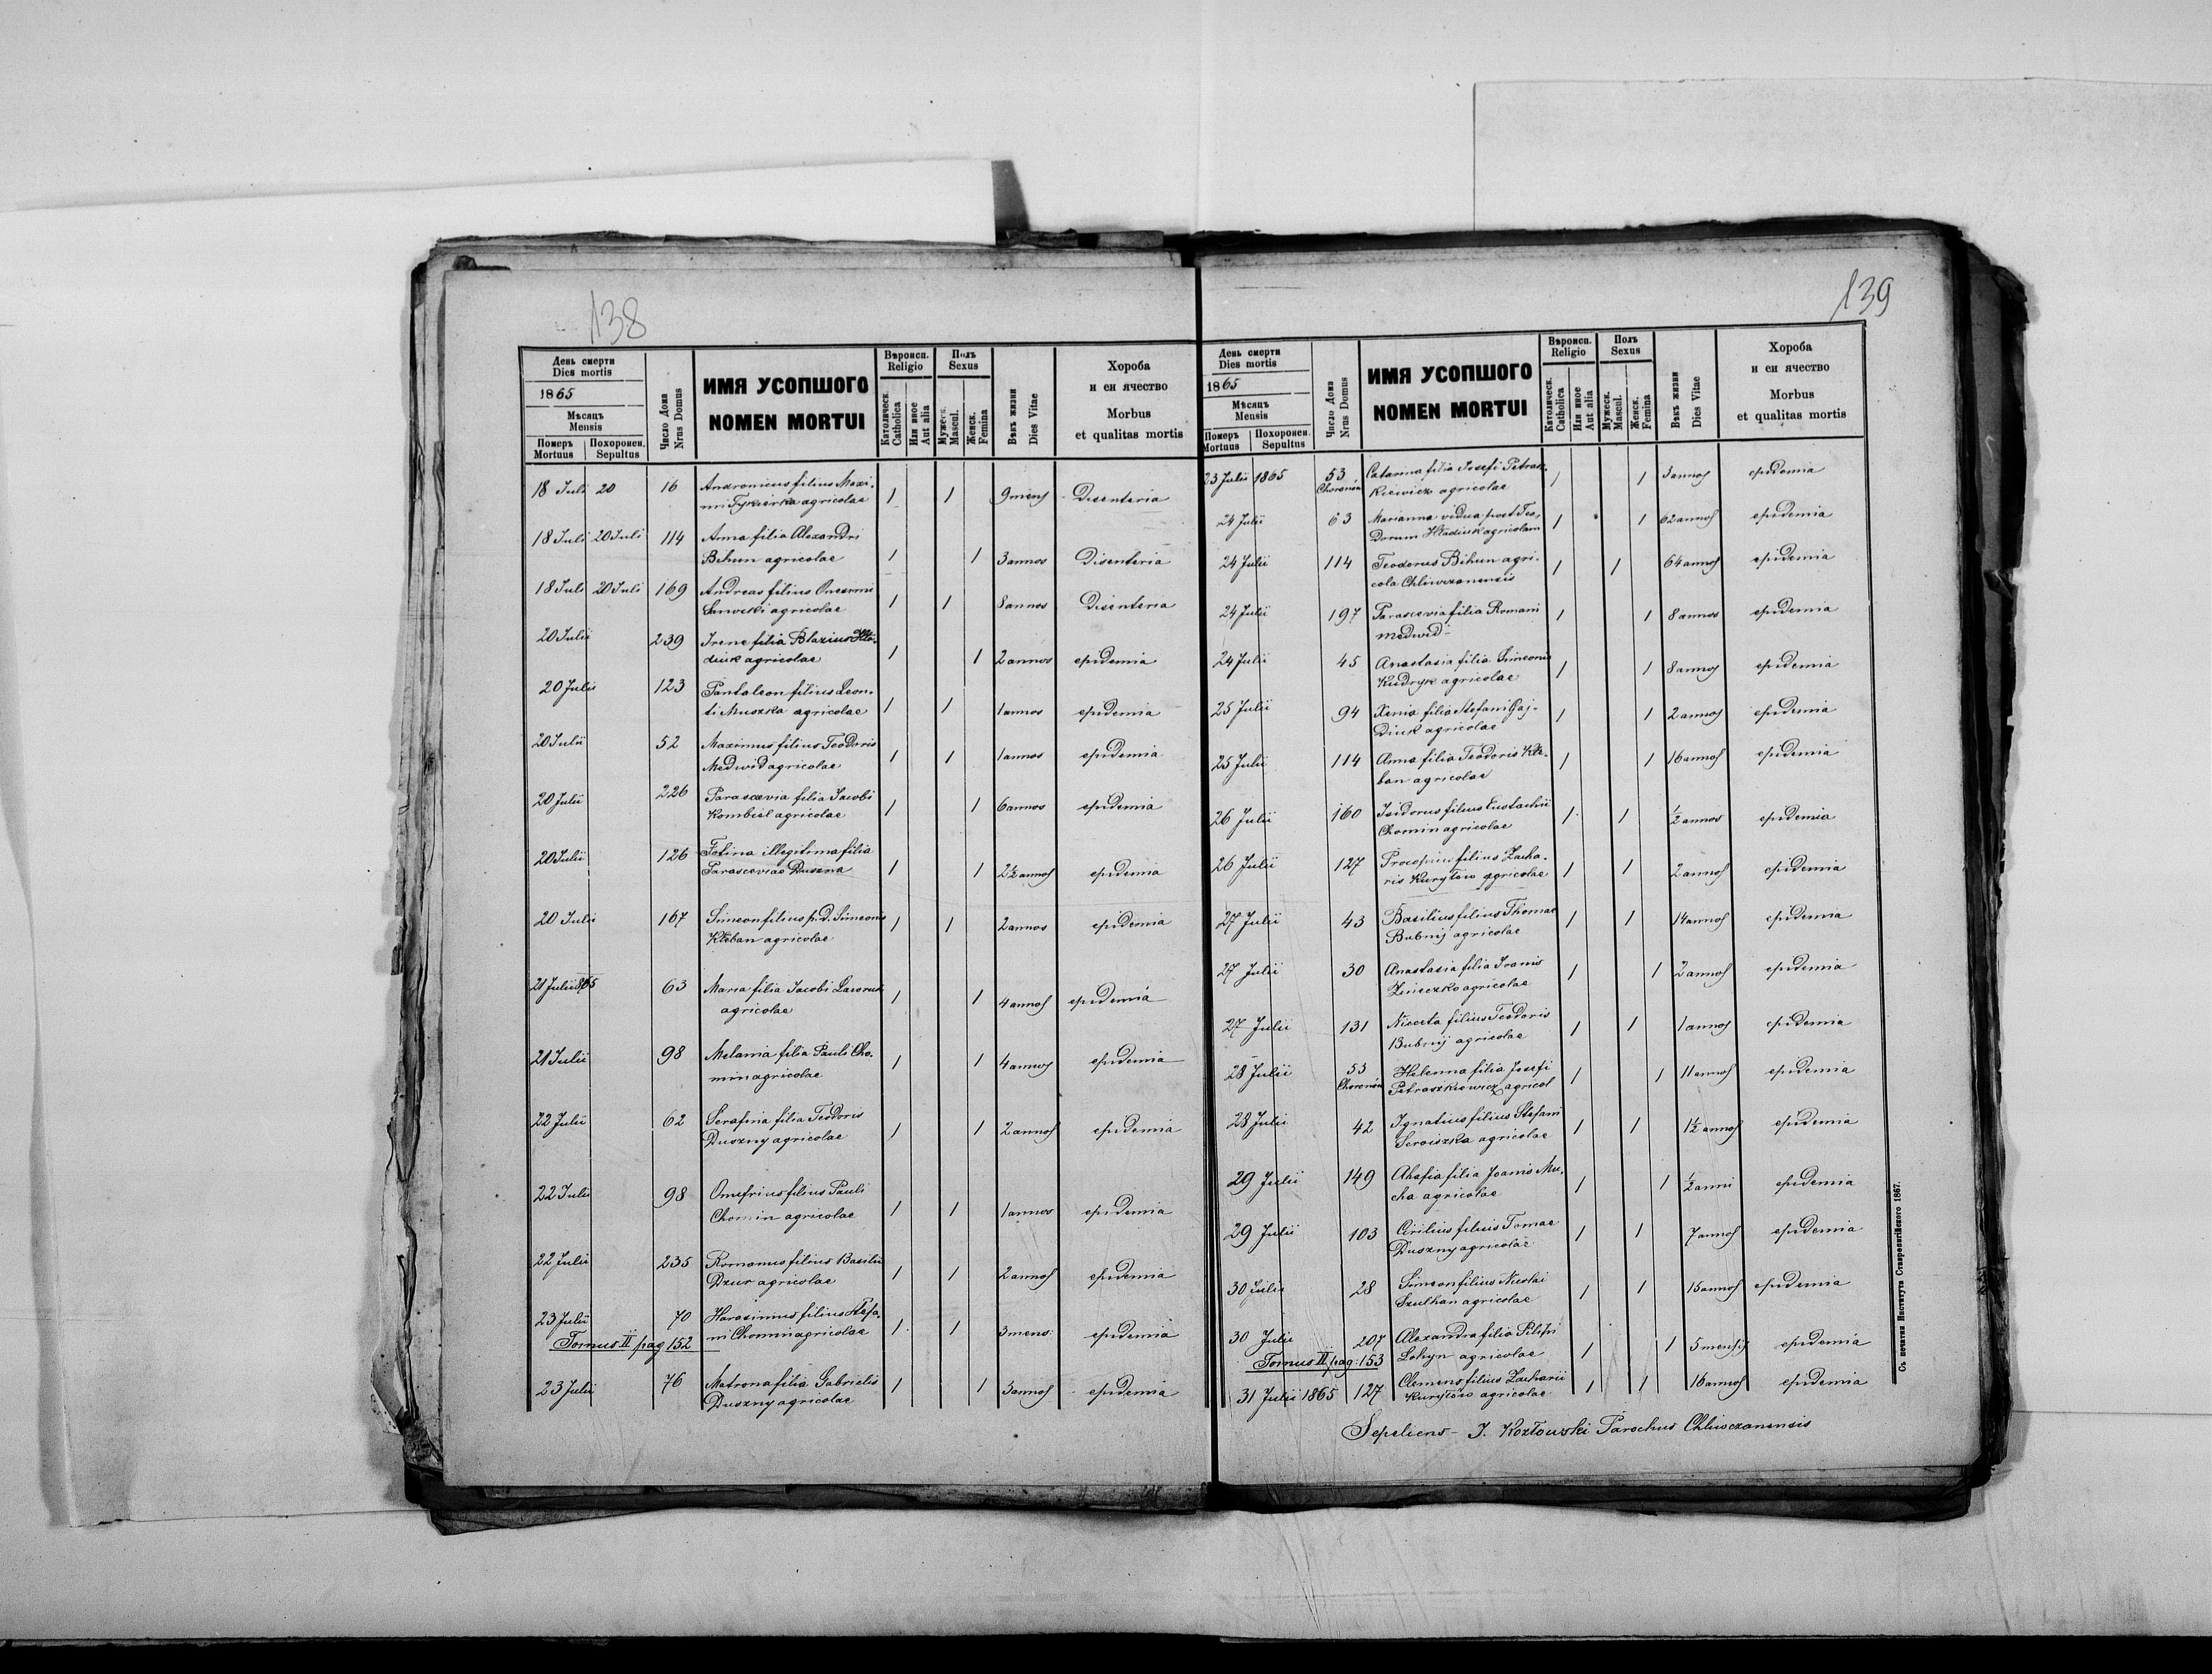 138
День смерти
Dies mortis
1865
Мѣсяцъ
Mensis
Померъ Похоронен.
Mortuus Sepultus
Число Дома
Nrus Domus
ИМЯ УСОПШОГО
NOMEN MORTUI
Вѣроисп.
Religio
Католическ.
Catholica
Или иное
Aut alia
Полъ
Sexus
Мужеск.
Mascul.
Женск.
Femina
Вѣкъ жизни
Dies Vitae
Хороба
и еи ячество
Morbus
et qualitas mortis
18 Juli 20 16 Andronicus filius Maxi-
mi Tykierka agricolae 1 1 9 mens Disenteria
18 Juli 20 Juli 114 Anna filia Alexandri
Bihun agricolae 1 1 3 annos Disenteria
18 Juli 20 Juli 169 Andreas filius Onesimi
agricolae 1 1 8 annos Disenteria
20 Julii 239 Irene filia Blazius Hła-
diuk agricolae 1 1 2 annos epidemia
20 Julii 123 Pantaleon filius Leon-
ti Muszka agricolae 1 1 1 annos epidemia
20 Julii 52 Maximus filius Teodoris
Medwid agricolae 1 1 1 annos epidemia
20 Julii 226 Parascevia filia Jacobi
Kombiel agricolae 1 1 6 annos epidemia
20 Julii 126 Fotina illegitima filia
Parasceviae Duszna 1 1 2½ annos epidemia
20 Julii 167 Simeon filius p.d. Simeonis
Kleban agricolae 1 1 2 annos epidemia
21 Julii 865 63 Maria filia Jacobi
agricolae 1 1 4 annos epidemia
21 Julii 98 Melania filia Pauli Cho-
min agricolae 1 1 4 annos epidemia
22 Julii 62 Serafina filia Teodoris
Duszny agricolae 1 1 2 annos epidemia
22 Julii 98 Onufrius filius Pauli
Chomin agricolae 1 1 1 annos epidemia
22 Julii 235 Romanus filius Basilii
Dzur agricolae 1 1 2 annos epidemia
23 Julii 70 Harasimus filius Stefa-
ni Chomin agricolae 1 1 3 mens: epidemia
Tomus II pag 152
23 Julii 76 Matrona filia Gabrielis
Duszny agricolae 1 1 3 annos epidemia
139
День смерти
Dies mortis
1865
Мѣсяцъ
Mensis
Померъ Похоронен.
Mortuus Sepultus
Число Дома
Nrus Domus
ИМЯ УСОПШОГО
NOMEN MORTUI
Вѣроисп.
Religio
Католическ.
Catholica
Или иное
Aut alia
Полъ
Sexus
Мужеск.
Mascul.
Женск.
Femina
Вѣкъ жизни
Dies Vitae
Хороба
и еи ячество
Morbus
et qualitas mortis
23 Julii 1865 53 Catarina filia Josefi Petrasz-
kiewicz agricolae 1 1 3 annos epidemia
24 Julii 63 Marianna vidua post Teo-
dorum Hładiuk agricolam 1 1 62 annos epidemia
24 Julii 114 Teodorus Bihun agri-
cola Chliwczanensis 1 1 64 annos epidemia
24 Julii 197 Parascevia filia Romani
Medwid 1 1 8 annos epidemia
24 Julii 45 Anastasia filia Simeonis
Kudryk agricolae 1 1 8 annos epidemia
25 Julii 94 Xenia filia Stefani Haj-
diuk agricolae 1 1 2 annos epidemia
25 Julii 114 Anna filia Teodoris Kle-
ban agricolae 1 1 16 annos epidemia
26 Julii 160 Isidorus filius Eustachii
Chomin agricolae 1 1 ½ annos epidemia
26 Julii 127 Procopius filius Zacha-
ris Kuryłow agricolae 1 1 2 annos epidemia
27 Julii 43 Basilius filius Thomae
Bubnij agricolae 1 1 14 annos epidemia
27 Julii 30 Anastasia filia Ivanis
agricolae 1 1 2 annos epidemia
27 Julii 131 Niceta filius Teodoris
Bubnij agricolae 1 1 1 annos epidemia
28 Julii 53 Helenna filia Josefi
Petraszkiewicz agricol 1 1 11 annos epidemia
28 Julii 42 Ignatius filius Stefani
agricolae 1 1 1½ annos epidemia
29 Julii 149 Ahafia filia Joanis Mu-
cha agricolae 1 1 ½ anni epidemia
29 Julii 103 Cirilius filius Tomae
Duszny agricolae 1 1 7 annos epidemia
30 Julii 28 Simeon filius Nicolai
Szulhan agricolae 1 1 15 annos epidemia
30 Julii 207 Alexandra filia Pilipi
Lohyn agricolae 1 1 5 mensis epidemia
Tomus II pag: 153
31 Julii 1865 127 Clemens filius Zacharii
Kuryłow agricolae 1 1 16 annos epidemia
Sepeliens - J. Kozłowski Parochus Chliwczanensis
Съ печатни Института Ставропигійского 1867.